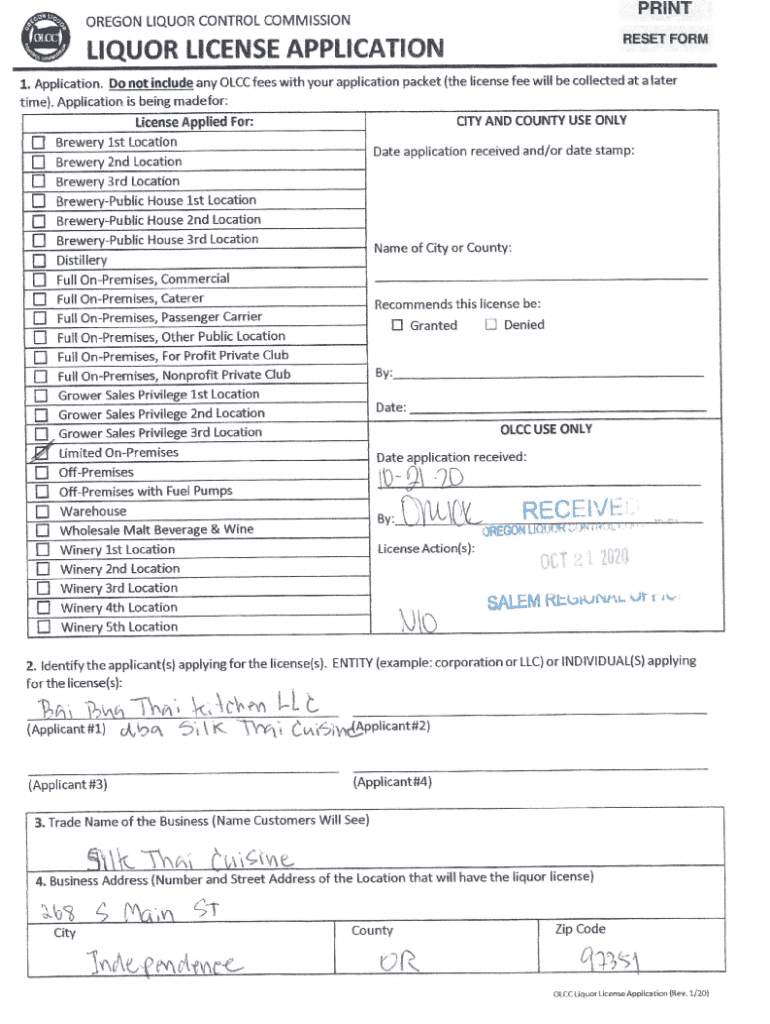 OREGON LIQUOR CONTROL COMMISSION
LIQUOR LICENSE APPLICATION
PRINT
RESET FORM
OLCC
1. Application. Do not include any OLCC fees with your application packet (the license fee will be collected at a later
time). Application is being made for:
License Applied For:
Brewery 1st Location
Brewery 2nd Location
Brewery 3rd Location
Brewery-Public House 1st Location
Brewery-Public House 2nd Location
Brewery-Public House 3rd Location
Distillery
Full On-Premises, Commercial
Full On-Premises, Caterer
Full On-Premises, Passenger Carrier
Full On-Premises, Other Public Location
Full On-Premises, For Profit Private Club
Full On-Premises, Nonprofit Private Club
Grower Sales Privilege 1st Location
Grower Sales Privilege 2nd Location
Grower Sales Privilege 3rd Location
Limited On-Premises
Off-Premises
Off-Premises with Fuel Pumps
Warehouse
Wholesale Malt Beverage & Wine
Winery 1st Location
Winery 2nd Location
Winery 3rd Location
Winery 4th Location
Winery 5th Location
CITY AND COUNTY USE ONLY
Date application received and/or date stamp:
Name of City or County:
Recommends this license be:
Granted Denied
By:
Date:
OLCC USE ONLY
Date application received:
10-21-20
By:
RECEIVED
OREGON LIQUOR CONTROL
License Action(s):
OCT 21 2020
SALEM REGIONAL OFFIC
N/O
2. Identify the applicant(s) applying for the license(s). ENTITY (example: corporation or LLC) or INDIVIDUAL(S) applying
for the license(s):
Bai Bua Thai Kitchen LLC
(Applicant #1) dba Silk Thai Cuisine (Applicant #2)
(Applicant #3) (Applicant #4)
3. Trade Name of the Business (Name Customers Will See)
Silk Thai Cuisine
4. Business Address (Number and Street Address of the Location that will have the liquor license)
268 S Main ST
City County Zip Code
Independence OR 97351
OLCC Liquor License Application (Rev. 1/20)